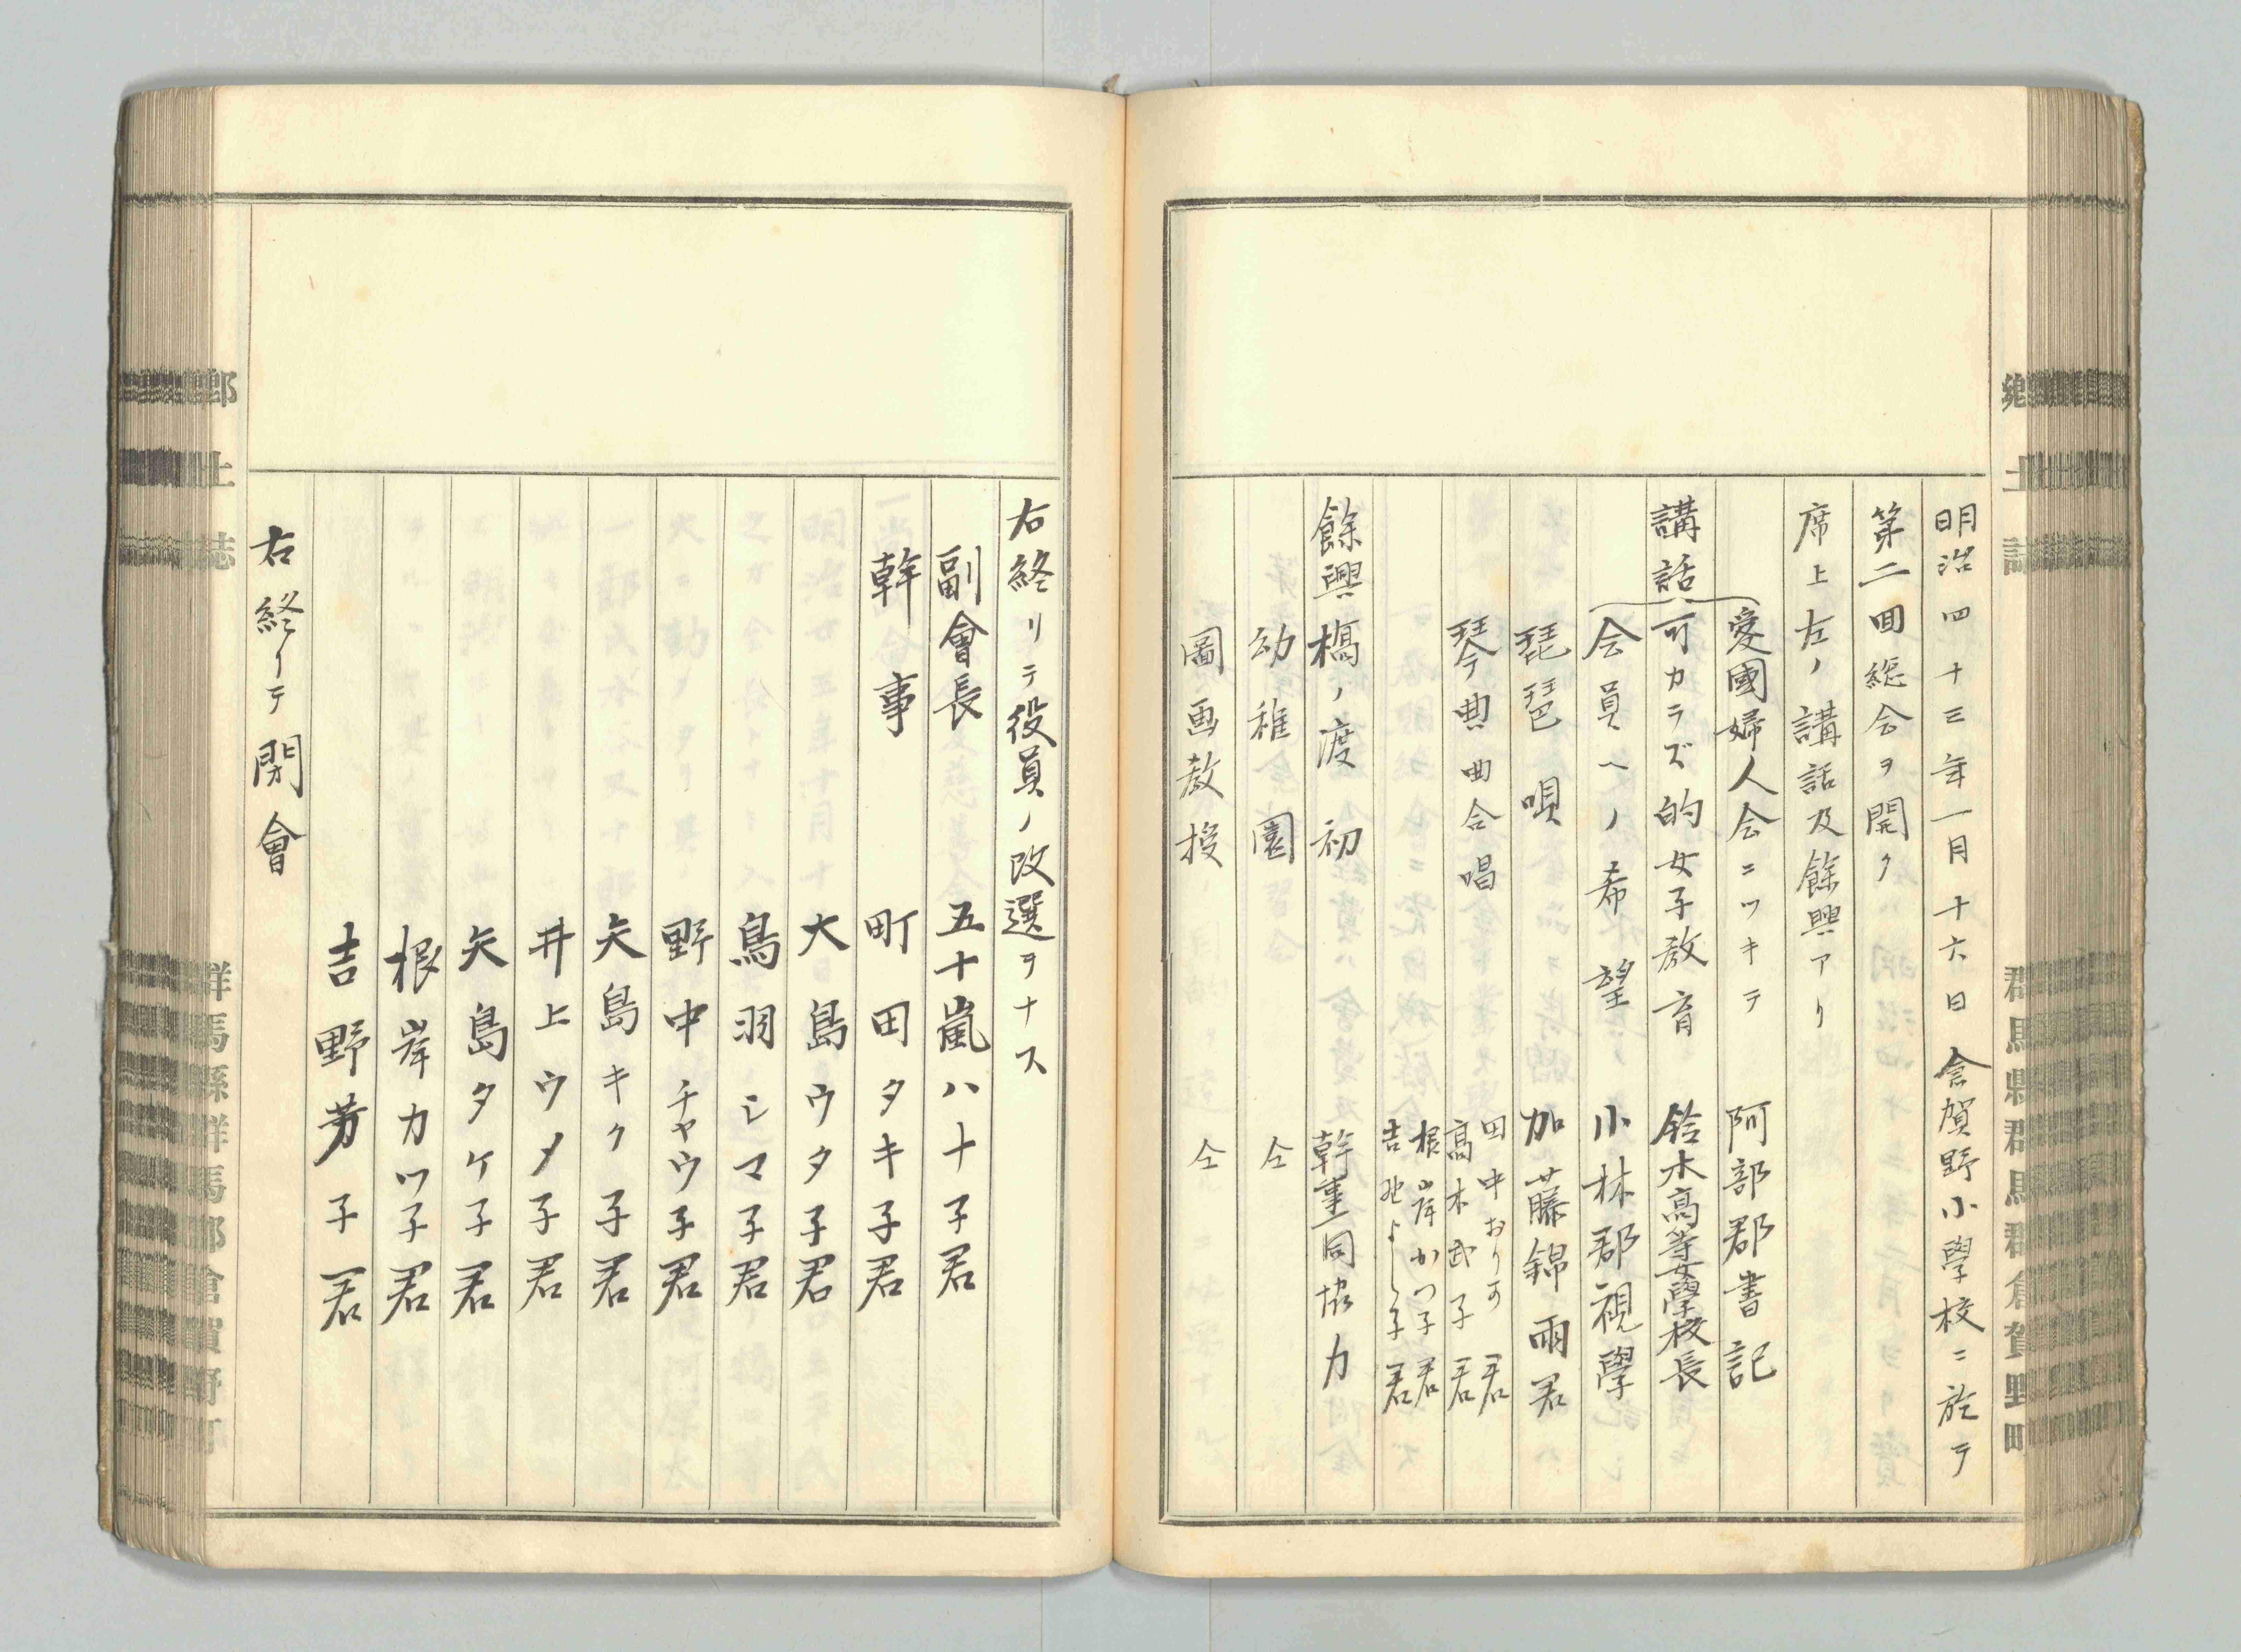 郷土誌
群馬縣群馬郡倉賀野町
明治四十三年一月十六日倉賀野小學校ニ於テ
第二囬総会ヲ開ク
席上左ノ講話及餘興アリ
愛國婦人会ニツキテ 阿部郡書記
講話 可カラズ的女子教育 鈴木高等女學校長
会員ヘノ希望 小林郡視學
琵琶唄 加藤錦雨君
琴曲 曲合唱 田中おりそ君
髙木武子君
根岸かつ子君
吉野よし子君
餘興 橋ノ渡初 幹事一同協力
幼稚園 仝
圖画教授 仝
右終リテ役員ノ改選ヲナス
副會長 五十嵐ハナ子君
幹事 町田タキ子君
大島ウタ子君
鳥羽シマ子君
野中チヤウ子君
矢島キク子君
井上ウメ子君
矢島タケ子君
根岸カツ子君
吉野芳子君
右終リテ閉會
郷土誌
群馬縣群馬郡倉賀野町